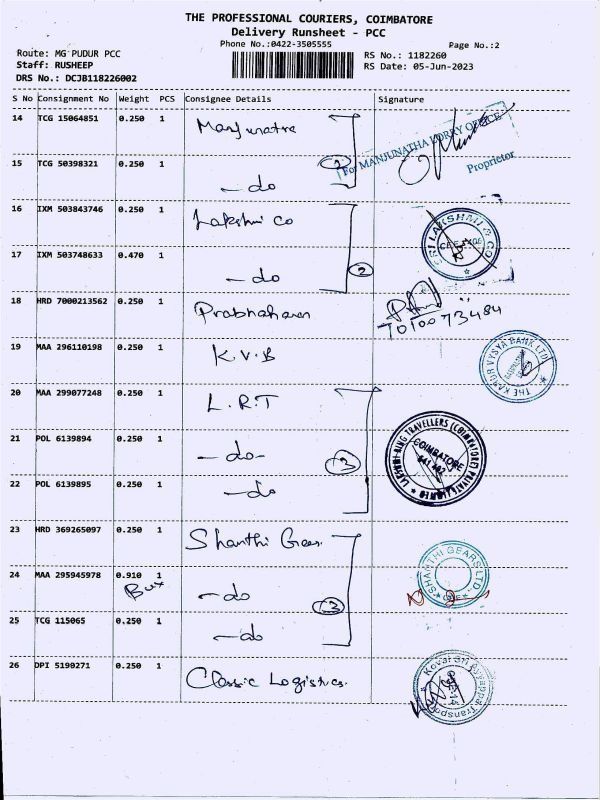 THE PROFESSIONAL COURIERS, COIMBATORE
Delivery Runsheet - PCC
Phone No.:0422-3505555
Page No.:2
Route: MG PUDUR PCC
RS No.: 1182260
Staff: RUSHEEP
RS Date: 05-Jun-2023
DRS No.: DCJB118226002
S No Consignment No Weight PCS Consignee Details Signature
14 TCG 15064851 0.250 1 Manjunatha
For MANJUNATHA LORRY OFFICE
Proprietor
15 TCG 50398321 0.250 1 - do
2
16 IXM 503843746 0.250 1 Lakshmi Co
SRI LAKSHMI & CO
17 IXM 503748633 0.470 1 - do
2
18 HRD 7000213562 0.250 1 Prabhaharan
7010073484
19 MAA 296110198 0.250 1 K.V.B
THE KARUR VYSYA BANK LTD
20 MAA 299077248 0.250 1 L.R.T
21 POL 6139894 0.250 1 - do -
3
LAKSHMI RING TRAVELLERS (COIMBATORE) PRIVATE LIMITED
COIMBATORE
641 402
22 POL 6139895 0.250 1 - do
23 HRD 369265097 0.250 1 Shanthi Gears.
SHANTHI GEARS LTD.
24 MAA 295945978 0.910 1 - do
Box
3
25 TCG 115065 0.250 1 - do
26 DPI 5190271 0.250 1 Classic Logistics.
Kovai Sri Ayyappa Transport